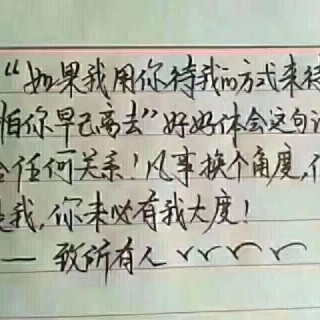 “如果我用你待我的方式来待
怕你早已离去”好好体会这句话
任何关系！凡事换个角度，
是我，你未必有我大度！
—— 致所有人